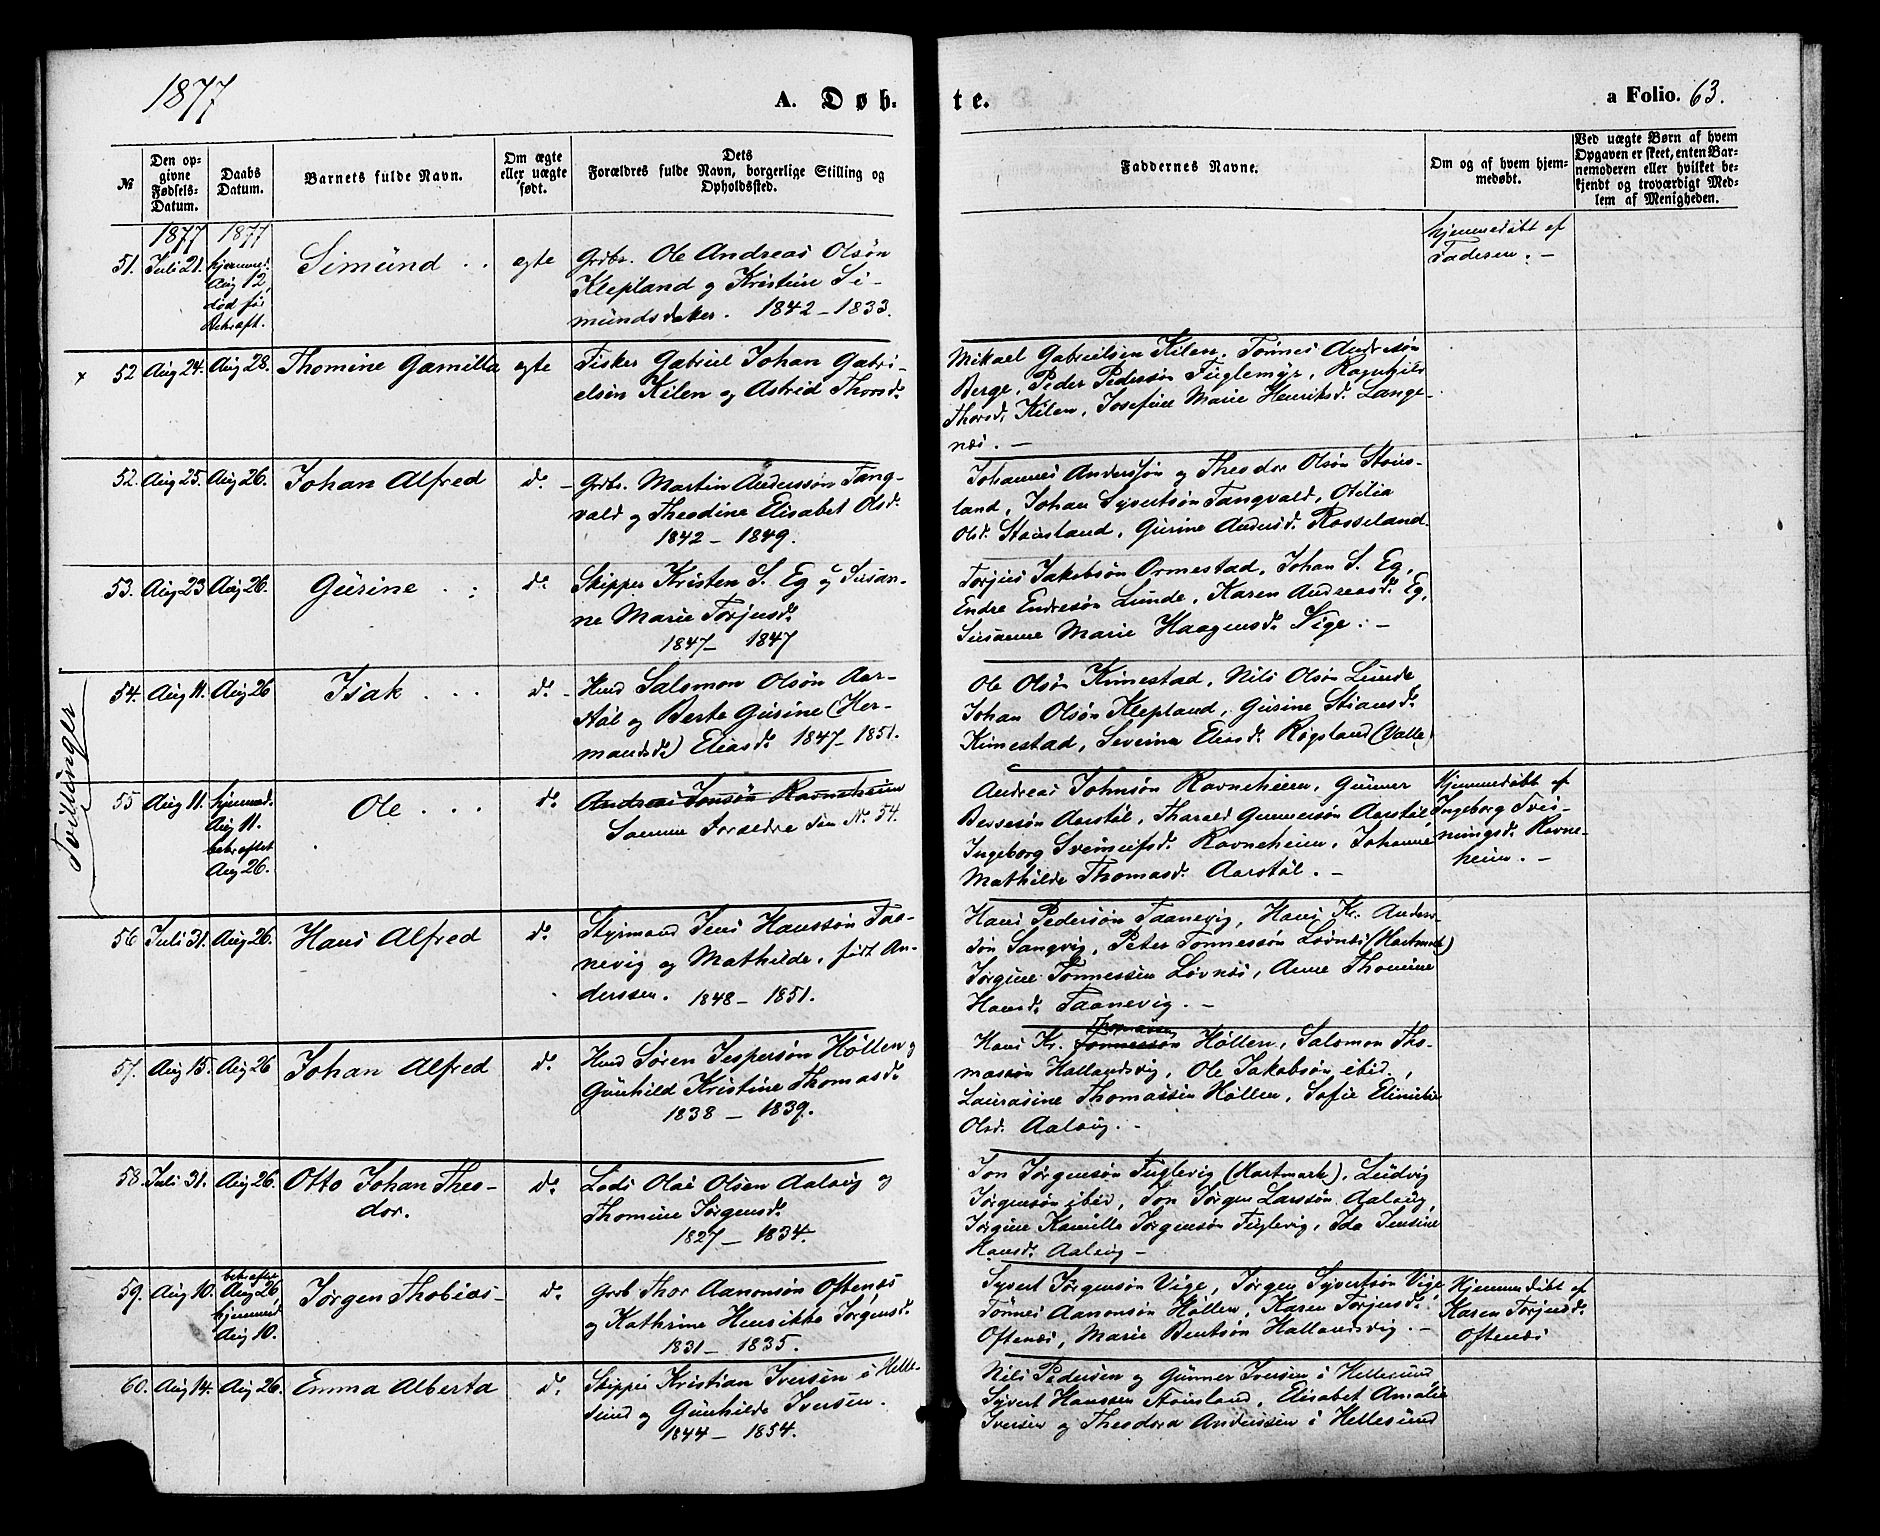 1877
A. Døb-
te.
a Folio. 63.
№
Den op-
givne
Fødsels-
Datum.
Daabs
Datum.
Barnets fulde Navn.
Om ægte
eller uægte
født.
Dets
Forældres fulde Navn, borgerlige Stilling og
Opholdssted.
Faddernes Navne.
Om og af hvem hjem-
medøbt.
Ved uægte Børn af hvem
Opgaven er skeet, enten Bar-
nemoderen eller hvilket be-
kjendt og troværdigt Med-
lem af Menigheden.
1877
1877
51.
Juli 21.
hjemmed.
Aug 12,
død før
Bekræft.
Simund
egte
Grdbr. Ole Andreas Olsøn
Klepland og Kristine Si-
mundsdatter. 1842 – 1833.
hjemmedøbt af
Faderen. –
x 52
Aug 24.
Aug 28.
Thomine Gamilla
egte
Fisker Gabriel Johan Gabri-
elsen Kilen og Astrid Thorsd.
Mikael Gabrielsen Kilen, Tønnes Andresøn
Berge, Peder Pedersøn Fuglemyr, Ragnhild
Thorsd. Kilen, Josefine Marie Henriksd. Lange-
næs. –
52.
Aug 25.
Aug 26.
Johan Alfred
do.
Grdbr. Martin Anderssøn Tang-
vald og Theodine Elisabet Olsd.
1842 – 1849.
Johannes Anderssøn og Theodor Olsøn Stous-
land, Johan Syvertsøn Tangvald, Otilia
Olsd. Stousland, Gurine Andersd. Rosseland.
53.
Aug 23
Aug 26.
Gurine
do.
Skipper Kristen S. Eg og Susan-
ne Marie Torjusd.
1847 – 1847
Torjus Jakobsøn Ormestad, Johan S. Eg,
Endre Endresøn Lunde, Karen Andreasd. Eg,
Susanne Marie Haagensd. Vige. –
Tvillinger
54.
Aug 11.
Aug 26
Isak
do.
Hmd Salomon Olsøn Aar-
støl og Berte Gurine (Her-
mandsd.) Eliasd. 1847 – 1851.
Ole Olsøn Kimestad, Nils Olsøn Lunde
Johan Olsøn Klepland, Gurine Stiansd.
Kimestad, Severine Eliasd. Røgsland (Valle)
55
Aug 11.
hjemmed.
Aug 11.
bekræftet
Aug 26.
Ole
do.
Andreas Jonsøn Ravneheien
Samme Forældre som No. 54.
Andreas Johnsøn Ravneheien, Gunner
Bersesøn Aarstøl, Tharald Gunnersøn Aarstøl,
Ingeborg Svenungsd. Ravneheien, Johanne
Mathilde Thomasd. Aarstøl. –
Hjemmedøbt af
Ingeborg Sven-
nungsd. Ravne-
heien. –
56
Juli 31.
Aug 26.
Hans Alfred
do.
Styrmand Jens Hanssøn Taa-
nevig og Mathilde, født An-
derssen. 1848 – 1851.
Hans Pedersøn Taanevig, Hans Kr. Anders-
søn Langvig, Peter Tønnessøn Løvnæs (Hartmark)
Jørgine Tønnessen Løvnæs, Anne Thomine
Hansd. Taanevig. –
57.
Aug 15.
Aug 26
Johan Alfred
do.
Hmd Søren Jespersøn Høllen og
Gunhild Kristine Thomasd.
1838 – 1839.
Hans Kr. Tønnessøn Thomassen Høllen, Salomon Tho-
massøn Hallandsvig, Ole Jakobsøn ibid.,
Laurasine Thomassen Høllen, Sofie
Olsd. Aalevig. –
58.
Juli 31.
Aug 26.
Otto Johan Theo-
dor.
do.
Lods Olai Olsen Aalevig og
Thomine Jørgensd.
1827 – 1834.
Jon Jørgensøn Fuglevig (Hartmark), Ludvig
Jørgensøn ibid, Jon Jørgen Larssøn Aalevig,
Jørgine Kamilla Jørgensøn Fuglevig, Ida Jensine
Hansd. Aalevig –
59.
Aug 10.
bekræftet
Aug 26,
hjemmed.
Aug 10.
Jørgen Thobias
do.
Grb Thor Aanonsøn Oftenæs
og Kathrine Henrikke Jørgensd.
1831 – 1835.
Syvert Jørgensøn Vige, Jørgen Syvertsøn Vige,
Tønnes Aanonsøn Høllen, Karen Torjusd.
Oftenæs, Marie Bentsøn Hallandsvig. –
Hjemmedøbt af
Karen Torjusd.
Oftenæs
60.
Aug 14.
Aug 26.
Emma Alberta
do.
Skipper Kristian Iversøn i Helle-
sund og Gunhilde Iversen.
1844 – 1854.
Nils Pedersen og Gunner Iversen i Hellesund
Syvert Hanssen Stousland, Elisabet Amalie
Iversen og Theodora Anderssen i Hellesund